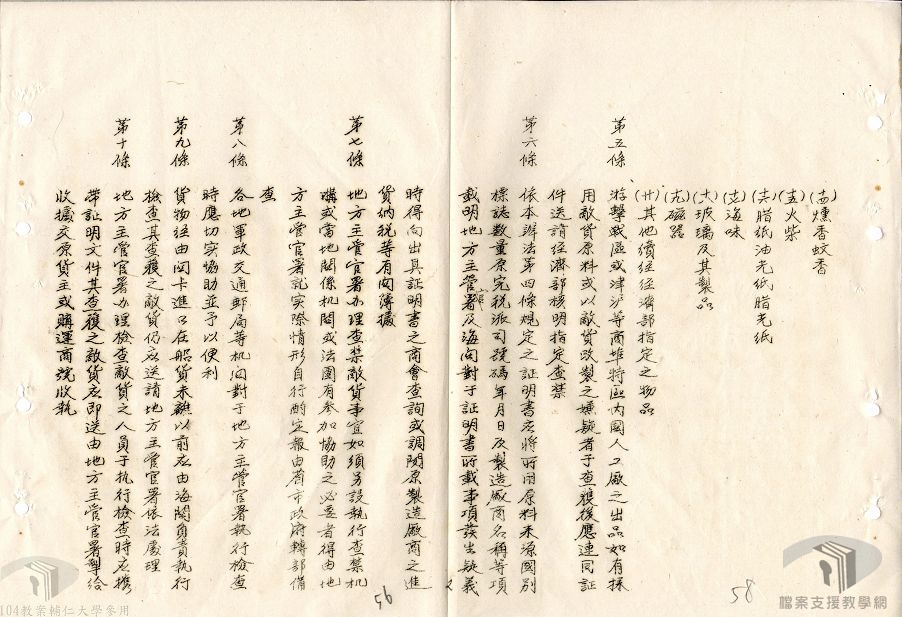 (十四)燻香蚊香
(十五)火柴
(十六)腊紙油光紙腊光紙
(十七)海味
(十八)玻璃及其製品
(十九)磁器
(廿)其他續經經濟部指定之物品
第五條 游擊戰區或津沪等商埠特區内國人工廠之出品如有採
用敵貨原料或以敵貨改製之嫌疑者于查獲後應連同証
件送請經濟部核明指定查禁
第六條 依本辦法第四條規定之証明書應將所用原料来源國別
標誌数量原完税派司號碼年月日及製造廠商名稱等項
載明地方主管署及海関對于証明書所載事項發生疑義
時得向出具証明書之商會查詢或調閱原製造廠商之進
貨納税等有関簿據
第七條 地方主管官署办理查禁敵貨事宜如須另設执行查禁机
構或當地関係机関或法團有参加協助之必要者得由地
方主管官署訨实際情形自行酌定報由省市政府轉部備
查
第八條 各地軍政交通郵局等机関對于地方主管官署执行檢查
時應切实協助並予以便利
第九條 貨物経由関卡進口在船貨未離以前应由海関負責执行
檢查其查獲之敵貨仍应送請地方主管官署依法處理
第十條 地方主管官署办理檢查敵貨之人員于执行檢查時应携
帶証明文件其查獲之敵貨应即送由地方主管官署製給
收據交原貨主或購運商號收執
58
56
檔案支援教學網
104教案輔仁大學參用